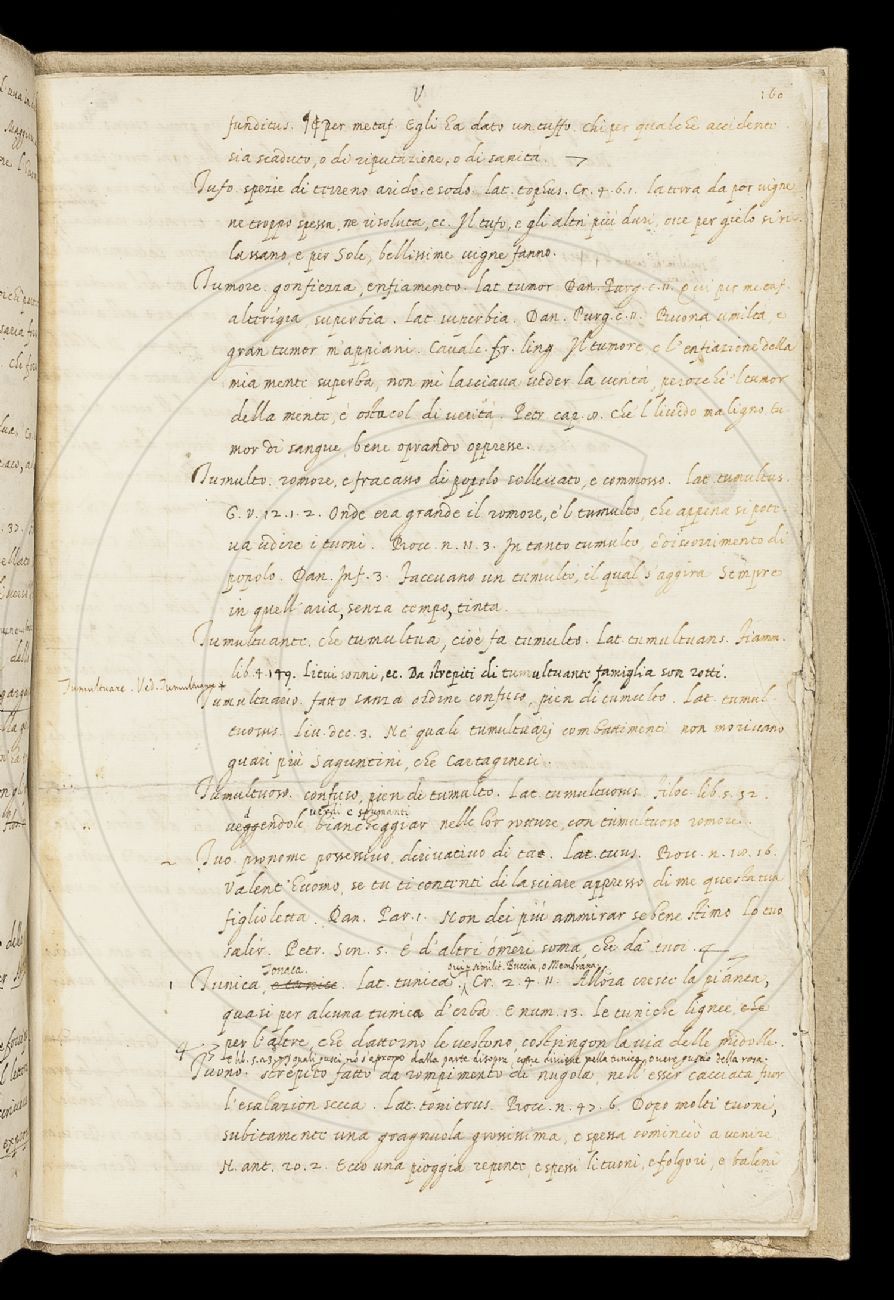 V
160
funditus. ¶ per metaf. Egli ha dato un tuffo. chi per qualche accidente
sia scaduto, o di riputazione, o di sanità.
Tufo. spezie di terreno arido, e sodo. lat. tophus. Cr. 4. 6. 1. la terra da por vigne
ne troppo spessa, ne risoluta, ec. Il tufo, e gli altri più duri, ove per gielo si ri-
lassano, e per Sole, bellissime vigne fanno.
Tumore. gonfiezza, enfiamento. lat. tumor. Dan. Purg. c. 11. Qui per metaf.
alterigia superbia. lat. superbia. Dan. Purg. c. 11. Buona umiltà, e
gran tumor m'appiani. Cavalc. fr. ling. Il tumore e l'enfiazione della
mia mente superba, non mi lasciava veder la verità, perocchè 'l tumor
della mente, è ostacol di verità. Petr. cap. 8. che 'l livido maligno tu-
mor di sangue, bene oprando oppresse.
Tumulto. romore, e fracasso di popolo sollevato, e commosso. Lat. tumultus.
G. V. 12. 1. 2. Onde era grande il romore, e 'l tumulto, che appena si pote-
va udire i tuoni. Bocc. n. 11. 3. In tanto tumulto, e discorrimento di
popolo. Dan. Inf. 3. Facevano un tumulto, il qual s'aggira Sempre
in quell'aria, senza tempo, tinta.
Tumultuante. che tumultua, cioè fa tumulto. Lat. tumultuans. Fiamm.
lib. 4. 149. Lievi sonni, ec. Da strepiti di tumultuante famiglia son rotti.
Tumultuare. Ved.
Tumultuario. fatto sanza ordine confuso, pien di tumulto. Lat. tumul-
tuosus. Liv. dec. 3. Ne' quali tumultuarj combattimenti non morivano
quasi più Saguntini, che Cartaginesi.
Tumultuoso. confuso, pien di tumulto. Lat. tumultuosus. Filoc. lib. 5. 52.
verdi e spumanti
veggendole biancheggiar nelle lor rotture, con tumultuoso romore.
Tuo. pronome possessivo, derivativo di tu. Lat. tuus. Bocc. n. 18. 16.
Valent'Huomo, se tu ti contenti di lasciare appresso di me questa tua
figlioletta. Dan. Par. 1. Non dei più ammirar se bene stimo Lo tuo
salir. Petr. Son. 5. E d'altri omeri soma, che da' tuoi.
Tonaca. qui similit. Buccia, o Membrana.
1 Tunica, Lat. tunica. Cr. 2. 4. 11. Allora cresce la pianta,
quasi per alcuna tunica d'erba. E num. 13. le tuniche lignee, e le
per l'altre, che dattorno le vestono, costringon la via delle midolle.
dalla parte di sopra, come divisse nella tunica, della rosa.
Tuono. strepito fatto da rompimento di nugola, nell'esser cacciata fuor
l'esalazion secca. Lat. tonitrus. Bocc. n. 47. 6. Dopo molti tuoni,
subitamente una gragnuola grossissima, e spessa cominciò a venire
N. ant. 20. 2. Ecco una pioggia repente, e spessi li tuoni, e folgori, e baleni